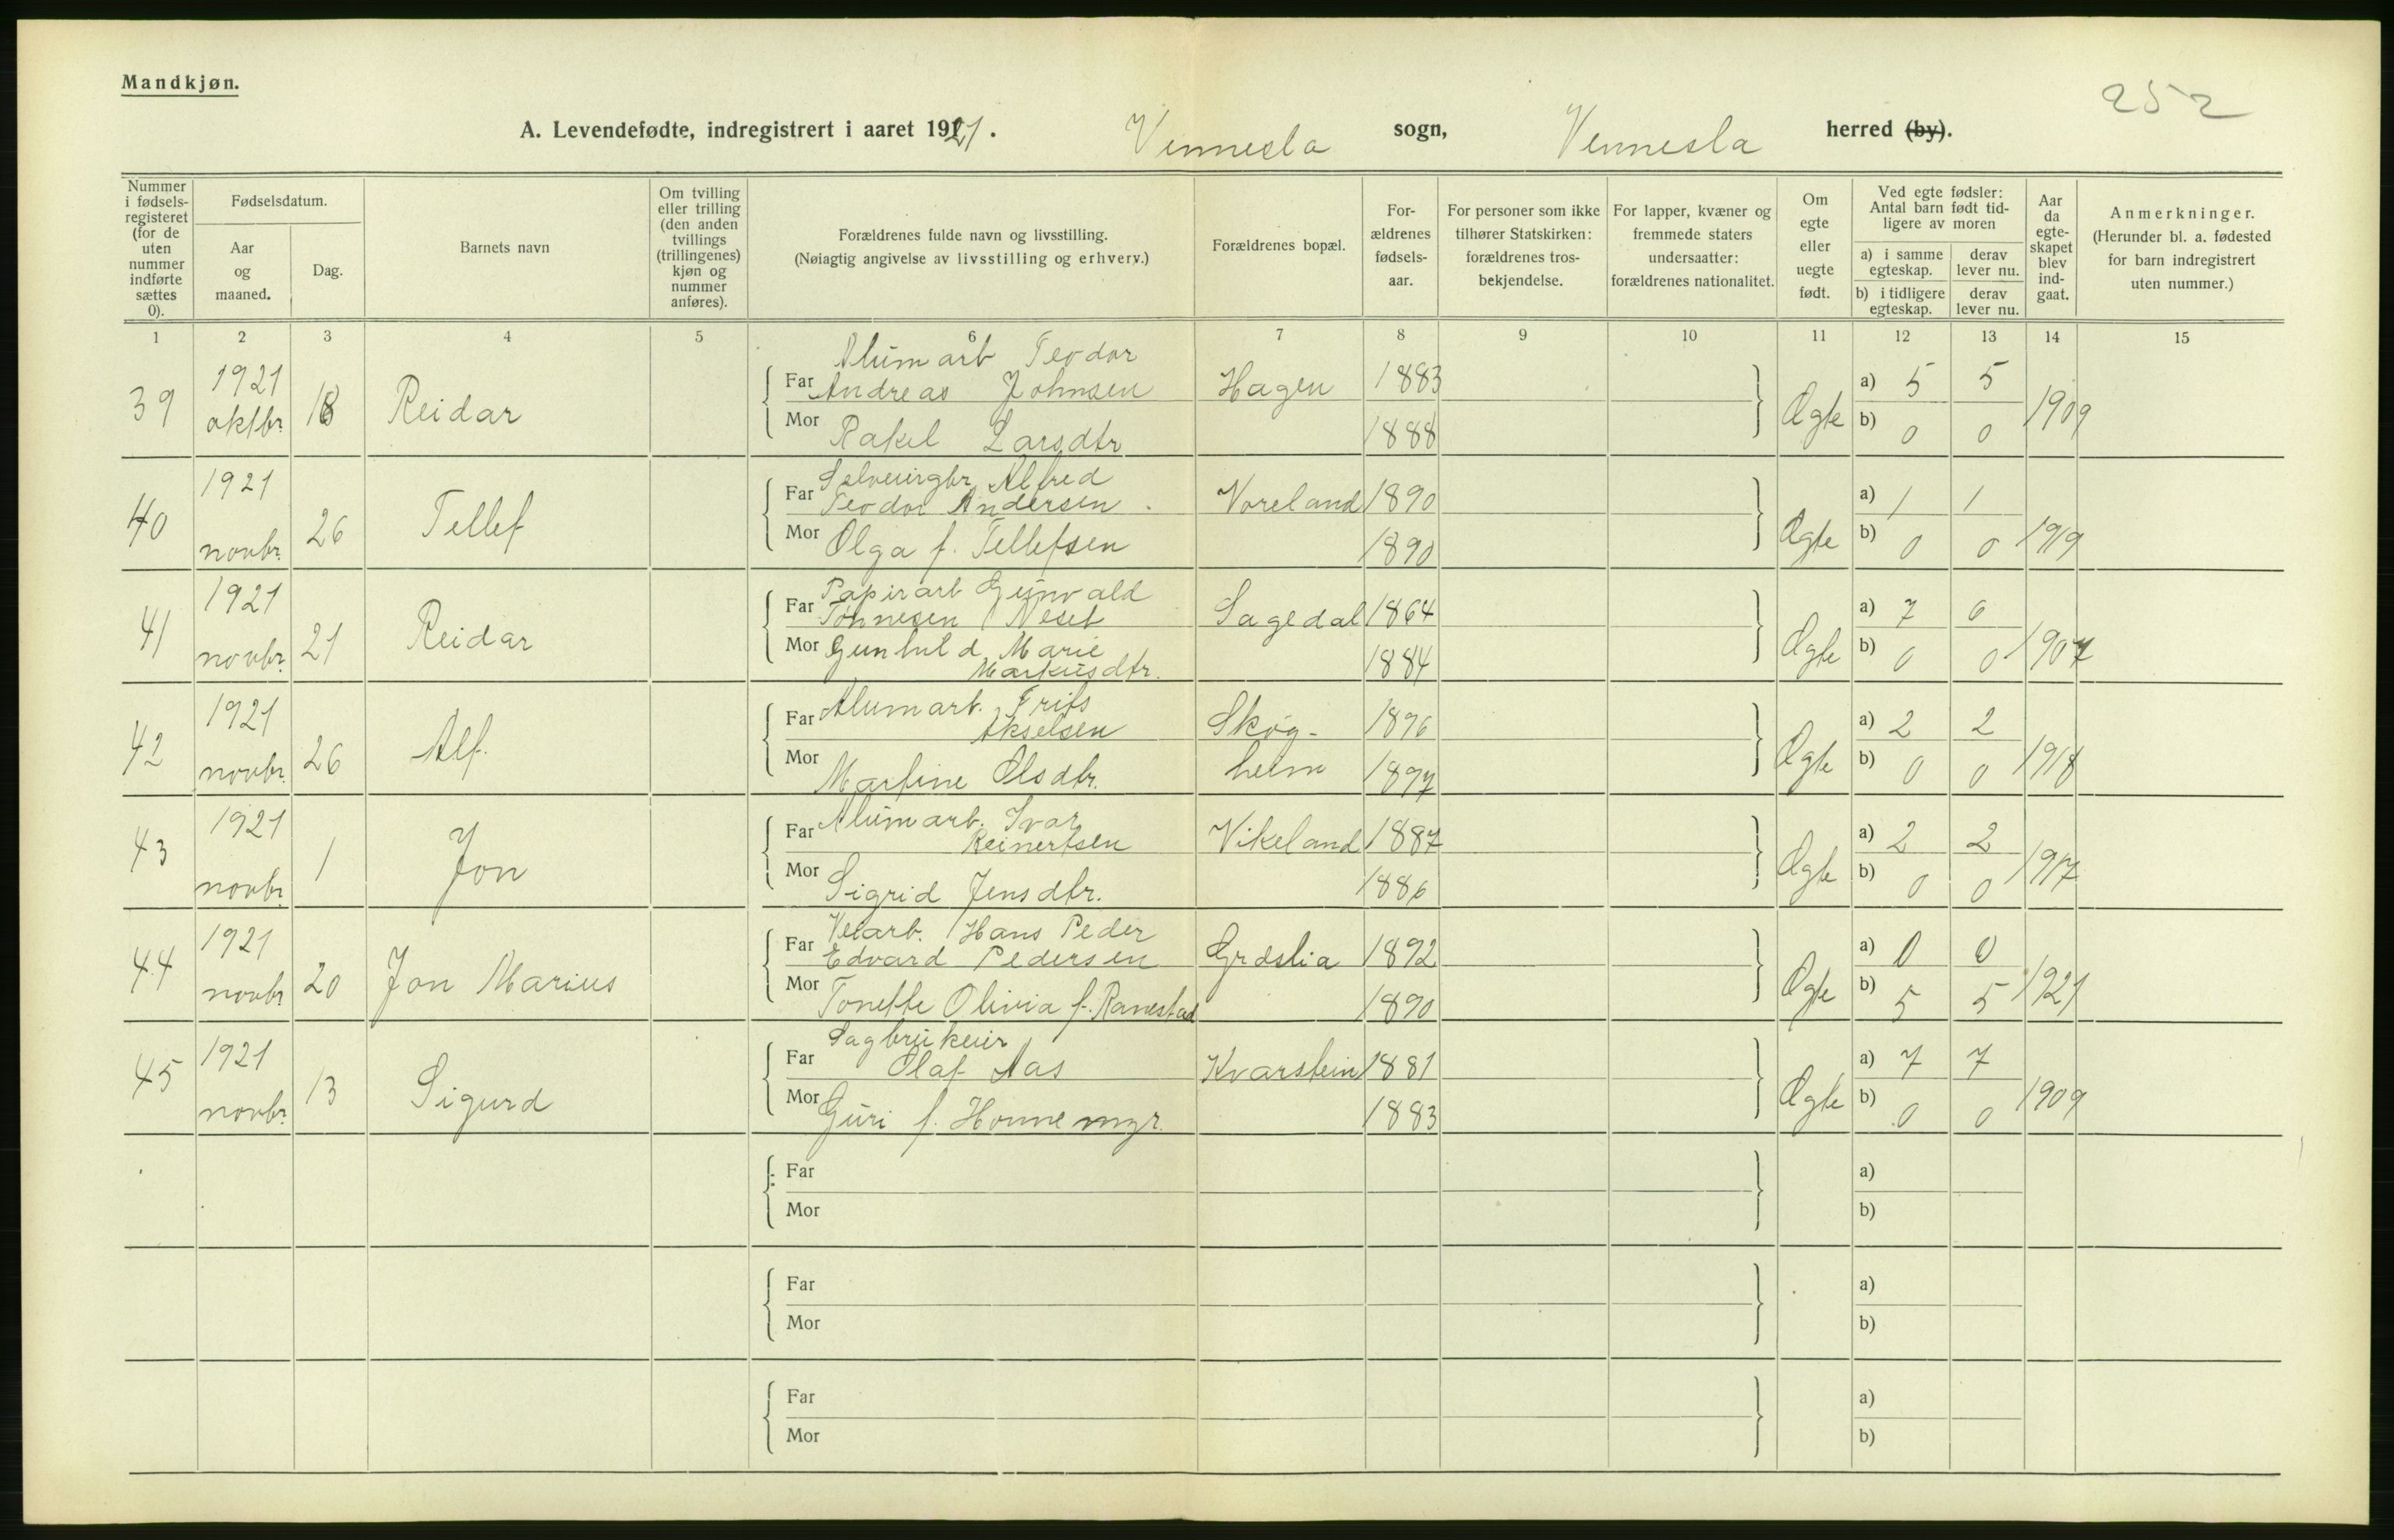 Mandkjøn.
252
A. Levendefødte, indregistrert i aaret 1921. Vennesla sogn, Vennesla herred (by).
Nummer i fødselsregisteret (for de uten nummer indførte sættes 0).
Fødselsdatum.
Aar og maaned.
Dag.
Barnets navn
Om tvilling eller trilling (den anden tvillings (trillingenes) kjøn og nummer anføres).
Forældrenes fulde navn og livsstilling.
(Nøiagtig angivelse av livsstilling og erhverv.)
Forældrenes bopæl.
Forældrenes fødselsaar.
For personer som ikke tilhører Statskirken: forældrenes trosbekjendelse.
For lapper, kvæner og fremmede staters undersaatter: forældrenes nationalitet.
Om egte eller uegte født.
Ved egte fødsler: Antal barn født tidligere av moren
a) i samme egteskap. derav lever nu.
b) i tidligere egteskap. derav lever nu.
Aar da egteskapet blev indgaat.
Anmerkninger.
(Herunder bl. a. fødested for barn indregistrert uten nummer.)
1 2 3 4 5 6 7 8 9 10 11 12 13 14 15
Alum arb Teodor
39 1921 oktbr. 18 Reidar Far Andreas Johnsen Hagen 1883 Ægte a) 5 5 1909
Mor Rakel Larsdtr 1888 b) 0 0
Selveiergbr Alfred
40 1921 novbr. 26 Tellef Far Teodor Andersen Voreland 1890 Ægte a) 1 1 1919
Mor Olga f. Tellefsen 1890 b) 0 0
Papirarb Gunvald
41 1921 novbr. 21 Reidar Far Tønnesen Neset Sagedal 1864 Ægte a) 7 6 1907
Mor Gunhild Marie 1884 b) 0 0
Markusdtr.
42 1921 novbr. 26 Alf. Far Alumarb. Frits Skog- 1896 Ægte a) 2 2 1918
Akselsen
Mor Martine Olsdtr. heim 1897 b) 0 0
43 1921 novbr. 1 Jon Far Alumarb. Ivar Vikeland 1887 Ægte a) 2 2 1917
Reinertsen
Mor Sigrid Jensdtr. 1886 b) 0 0
Veiarb. Hans Peder
44 1921 novbr. 20 Jon Marius Far Edvard Pedersen Græslia 1892 Ægte a) 0 0 1921
Mor Tonette Olivia f. Ranestad 1890 b) 5 5
Sagbrukeier
45 1921 novbr. 13 Sigurd Far Olaf Aas Kvarstein 1881 Ægte a) 7 7 1909
Mor Guri f. Honnemyr. 1883 b) 0 0
Far a)
Mor b)
Far a)
Mor b)
Far a)
Mor b)